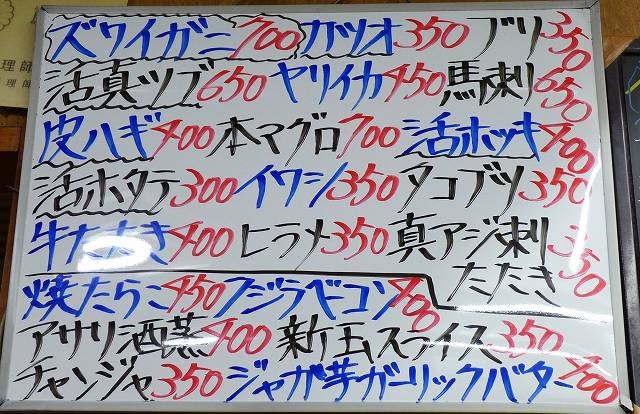 ズワイガニ700 カツオ350 ブリ350
活真ツブ650 ヤリイカ450 馬刺650
皮ハギ400 本マグロ700 活ホッキ400
活ホタテ300 イワシ350 タコブツ350
牛たたき400 ヒラメ350 真アジ刺 350
たたき
焼たらこ450 クジラベーコン400
アサリ酒蒸400 新玉スライス350
チャンジャ350 ジャガ芋ガーリックバター400
理師
理師